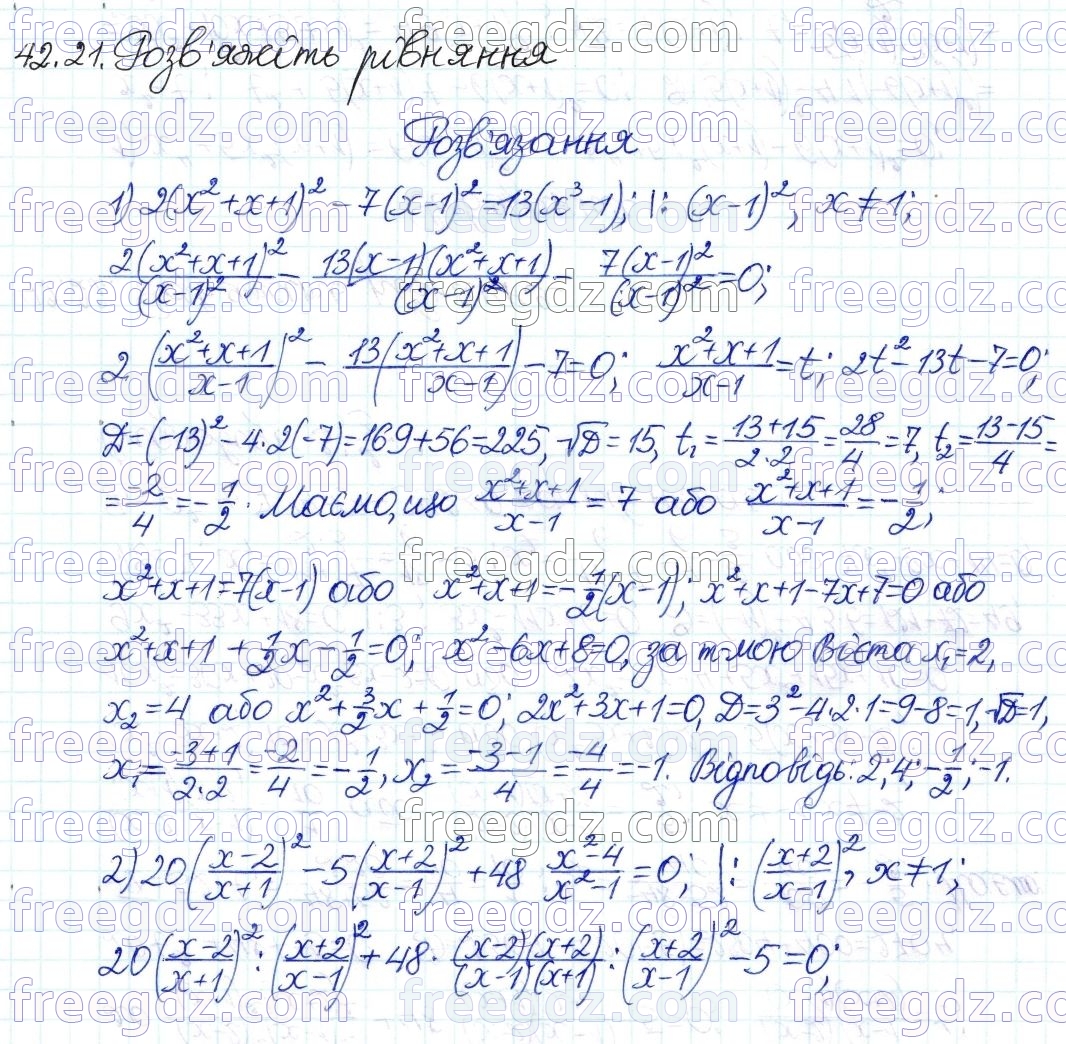 42.21. Розв'яжіть рівняння
Розв'язання
1) 2(x²+x+1)² - 7(x-1)² = 13(x³-1); |: (x-1)², x≠1;
2(x²+x+1)²/(x-1)² - 13(x-1)(x²+x+1)/(x-1)² - 7(x-1)²/(x-1)² = 0;
2((x²+x+1)/(x-1))² - 13((x²+x+1)/(x-1)) - 7 = 0; (x²+x+1)/(x-1) = t; 2t² - 13t - 7 = 0;
D = (-13)² - 4·2(-7) = 169+56 = 225, √D = 15, t₁ = (13+15)/(2·2) = 28/4 = 7, t₂ = (13-15)/4 =
= -2/4 = -1/2. Маємо, що (x²+x+1)/(x-1) = 7 або (x²+x+1)/(x-1) = -1/2;
x²+x+1 = 7(x-1) або x²+x+1 = -1/2(x-1); x²+x+1-7x+7=0 або
x²+x+1 + 1/2x - 1/2 = 0; x² - 6x + 8 = 0, за т-мою Вієта x₁ = 2,
x₂ = 4 або x² + 3/2x + 1/2 = 0; 2x²+3x+1 = 0, D = 3² - 4·2·1 = 9-8 = 1, √D = 1,
x₁ = (-3+1)/(2·2) = -2/4 = -1/2, x₂ = (-3-1)/4 = -4/4 = -1. Відповідь: 2; 4; -1/2; -1.
2) 20((x-2)/(x+1))² - 5((x+2)/(x-1))² + 48 (x²-4)/(x²-1) = 0; |: ((x+2)/(x-1))², x≠1;
20((x-2)/(x+1))² : ((x+2)/(x-1))² + 48 · (x-2)(x+2)/(x-1)(x+1) : ((x+2)/(x-1))² - 5 = 0;
freegdz.com freegdz.com freegdz.com